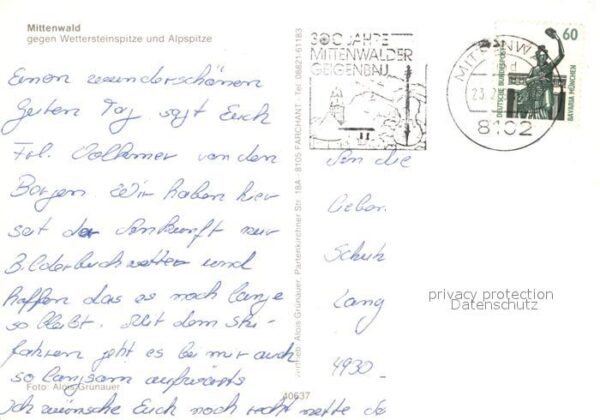 Mittenwald
gegen Wettersteinspitze und Alpspitze
Einen wunderschönen
Guten Tag sagt Euch
Frl. Volkmer von den
Bergen. Wir haben hier
seit der Ankunft nur
Bilderbuchwetter und
hoffen das es noch lange
so bleibt. Mit dem Ski-
fahren geht es bei mir auch
so langsam aufwärts
Ich wünsche Euch noch recht nette
Foto: Alois Grünauer
Verlag Alois Grünauer, Partenkirchner Str. 18A · 8105 FARCHANT · Tel. 08821-61183
40637
300 JAHRE
MITTENWALDER
GEIGENBAU
MITTENW
23.
8102
60
DEUTSCHE BUNDESPOST
BAVARIA MÜNCHEN
An die
lieben
Schuh
Lang
4930
privacy protection
Datenschutz